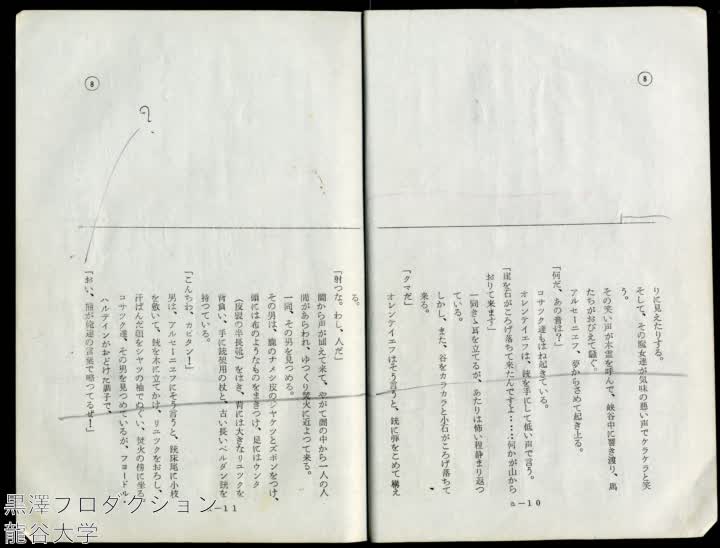 8
りに見えたりする。
そして、その魔女達が気味の悪い声でケラケラと笑
う。
その笑い声が木霊を呼んで、峡谷中に響き渡り、馬
たちがおびえて騒ぐ。
アルセーニエフ、夢からさめて起き上る。
「何だ、あの音は?」
コサック達もはね起きている。
オレンテイエフは、銃を手にして低い声で言う。
「崖を石がころげ落ちて来たんですよ……何かが山から
おりて来ます」
一同きゝ耳を立てるが、あたりは怖い程静まり返つ
ている。
しかし、また、谷をカラカラと小石がころげ落ちて
来る。
「クマだ」
オレンテイエフはそう言うと、銃に弾をこめて構え
a-10
8
?
る。
「射つな。わし、人だ」
闇から声が返えて来て、やがて闇の中から一人の人
間があらわれ、ゆつくり焚火に近よつて来る。
一同、その男を見つめる。
その男は、鹿のナメシ皮のジャケツとズボンをつけ、
頭には布のようなものをまきつけ、足にはウンタ
(皮製の半長靴)をはき、背には大きなリユツクを
背負い、手に銃架用の杖と、古い長いベルダン銃を
持つている。
「こんちわ、カピタン!」
男は、アルセーニエフにそう言うと、銃床尾に小枝
を敷いて、銃を木に立てかけ、リユツクをおろし、
汗ばんだ顔をシヤツの袖でぬぐい、焚火の傍に坐る。
コサツク達、その男を見つめているが、フヨードル・
ハルテインがおどけた調子で、
「おい、熊が俺達の言葉で喋つてるぜ!」
-11
黒澤プロダクション
龍谷大学